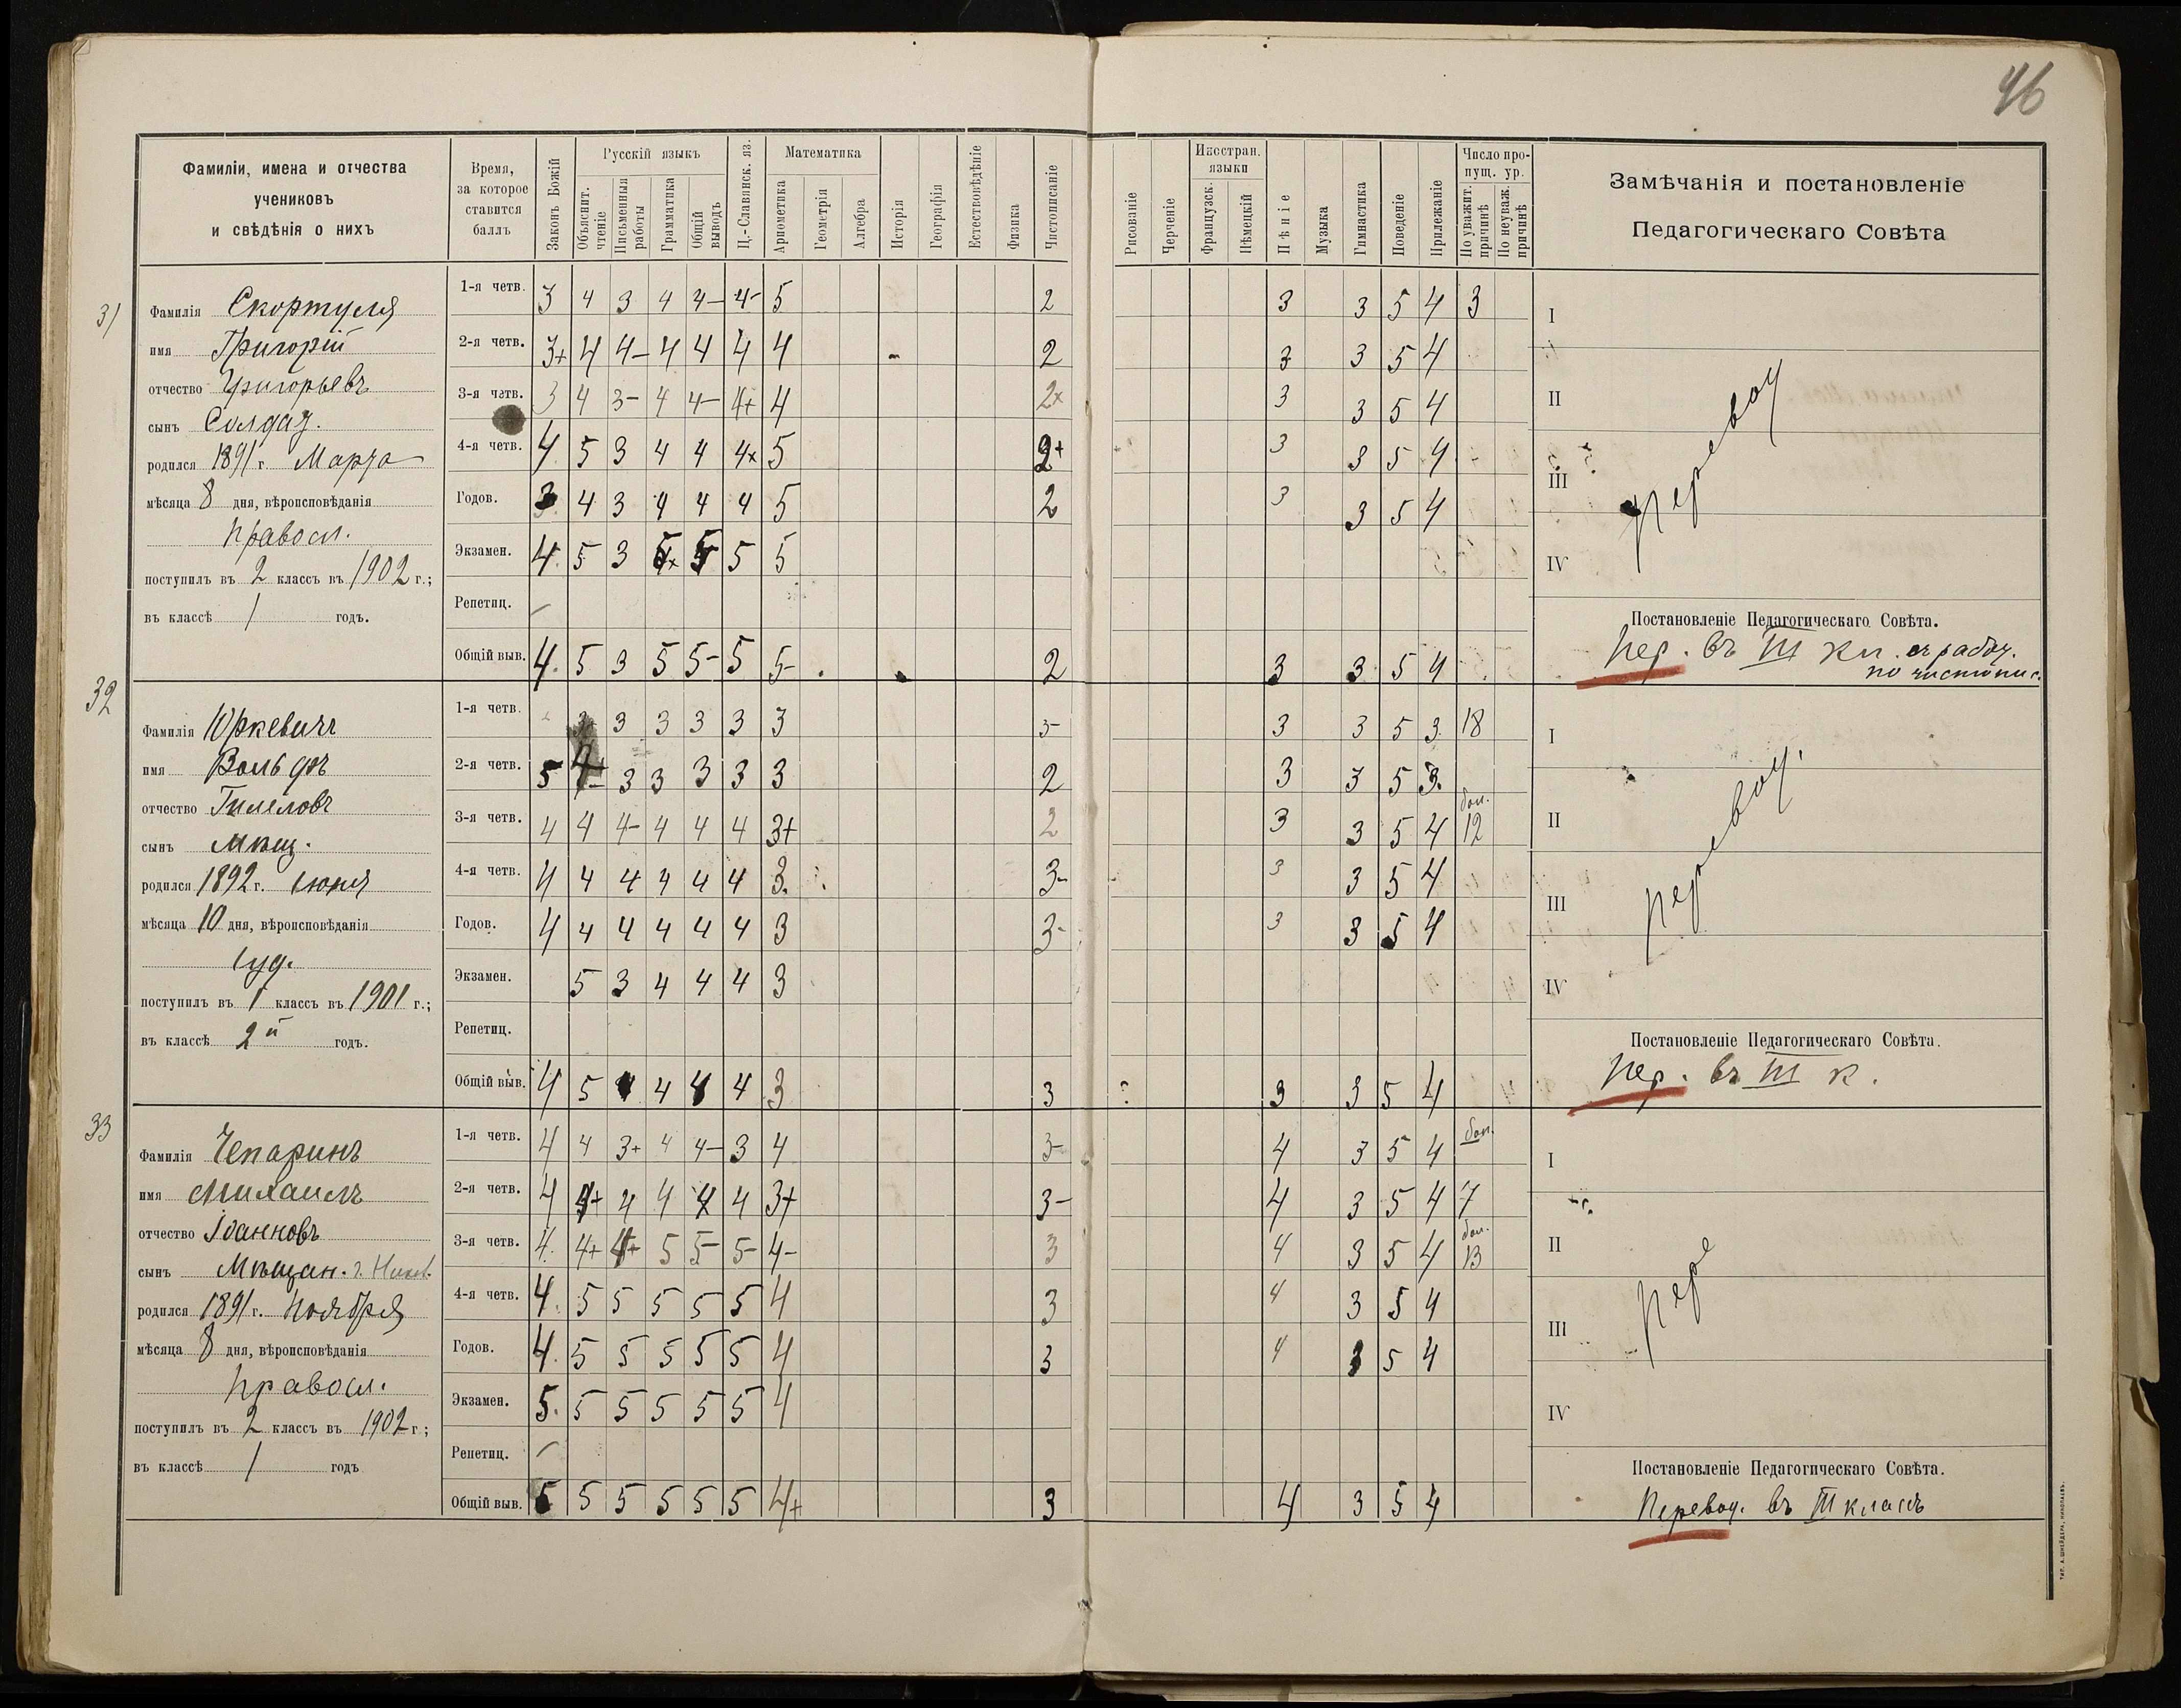 46
Фамиліи, имена и отчества
учениковъ
и свѣдѣнія о нихъ
Время,
за которое
ставится
баллъ
Законъ Божій
Русскій языкъ
Объяснит. чтеніе
Письменныя работы
Грамматика
Общій выводъ
Ц.-Славянск. яз.
Математика
Ариѳметика
Геометрія
Алгебра
Исторія
Географія
Естествовѣдѣніе
Физика
Чистописаніе
Рисованіе
Черченіе
Иностран. языки
Французск.
Нѣмецкій
Пѣніе
Музыка
Гимнастика
Поведеніе
Прилежаніе
Число пропущ. ур.
По уважит. причинѣ
По неуваж. причинѣ
Замѣчанія и постановленіе
Педагогическаго Совѣта
31
Фамилія Скортуля
имя Григорій
отчество Григорьевъ
сынъ Солдат.
родился 1891 г. Марта
мѣсяца 8 дня, вѣроисповѣданія
правосл.
поступилъ въ 2 классъ въ 1902 г.;
въ классѣ 1 годъ.
1-я четв. 3 4 3 4 4- 4- 5 2 3 3 5 4 3
2-я четв. 3+ 4 4- 4 4 4 4 2 3 3 5 4
3-я четв. 3 4 3- 4 4- 4+ 4 2+ 3 3 5 4
4-я четв. 4 5 3 4 4 4+ 5 2+ 3 3 5 4
Годов. 3 4 3 4 4 4 5 2 3 3 5 4
Экзамен. 4 5 3 5 5 5
Репетиц. –
Общій выв. 4. 5 3 5 5- 5 5- 2 3 3 5 4
I
II
III
IV
перевод
Постановленіе Педагогическаго Совѣта.
Пер. въ III кл. съ работ.
по чистопис.
32
Фамилія Юркевичъ
имя Вольфъ
отчество Гилеловъ
сынъ Мѣщ.
родился 1892 г. Іюня
мѣсяца 10 дня, вѣроисповѣданія
Іуд.
поступилъ въ 1 классъ въ 1901 г.;
въ классѣ 2й годъ.
1-я четв. 3 3 3 3 3 3 3- 3 3 5 3 18
2-я четв. 5 4- 3 3 3 3 3 2 3 3 5 3
3-я четв. 4 4 4- 4 4 4 3+ 2 3 3 5 4 бол. 12
4-я четв. 4 4 4 4 4 4 3 3- 3 3 5 4
Годов. 4 4 4 4 4 4 3 3- 3 3 5 4
Экзамен. 5 3 4 4 4 3
Репетиц.
Общій выв. 4 5 4 4 4 4 3 3 3 3 5 4
I
II
III
IV
перевод.
Постановленіе Педагогическаго Совѣта.
Пер. въ III к.
33
Фамилія Чепаринъ
имя Михаилъ
отчество Іоанновъ
сынъ Мѣщан. г. Никол.
родился 1891 г. Ноября
мѣсяца 8 дня, вѣроисповѣданія
правосл.
поступилъ въ 2 классъ въ 1902 г;
въ классѣ 1 годъ
1-я четв. 4 4 3+ 4 4- 3 4 3- 4 3 5 4 бол.
2-я четв. 4 4+ 4 4 4 4 3+ 3- 4 3 5 4 7
3-я четв. 4 4+ 4+ 5 5- 5- 4- 3 4 3 5 4 бол. 13
4-я четв. 4. 5 5 5 5 5 4 3 4 3 5 4
Годов. 4. 5 5 5 5 5 4 3 4 3 5 4
Экзамен. 5. 5 5 5 5 5 4
Репетиц. –
Общій выв. 5 5 5 5 5 5 4+ 3 4 3 5 4
I
II
III
IV
пере
Постановленіе Педагогическаго Совѣта.
Перевод. въ III классъ
ТИП. А. ШНЕЙДЕРА, НИКОЛАЕВЪ.